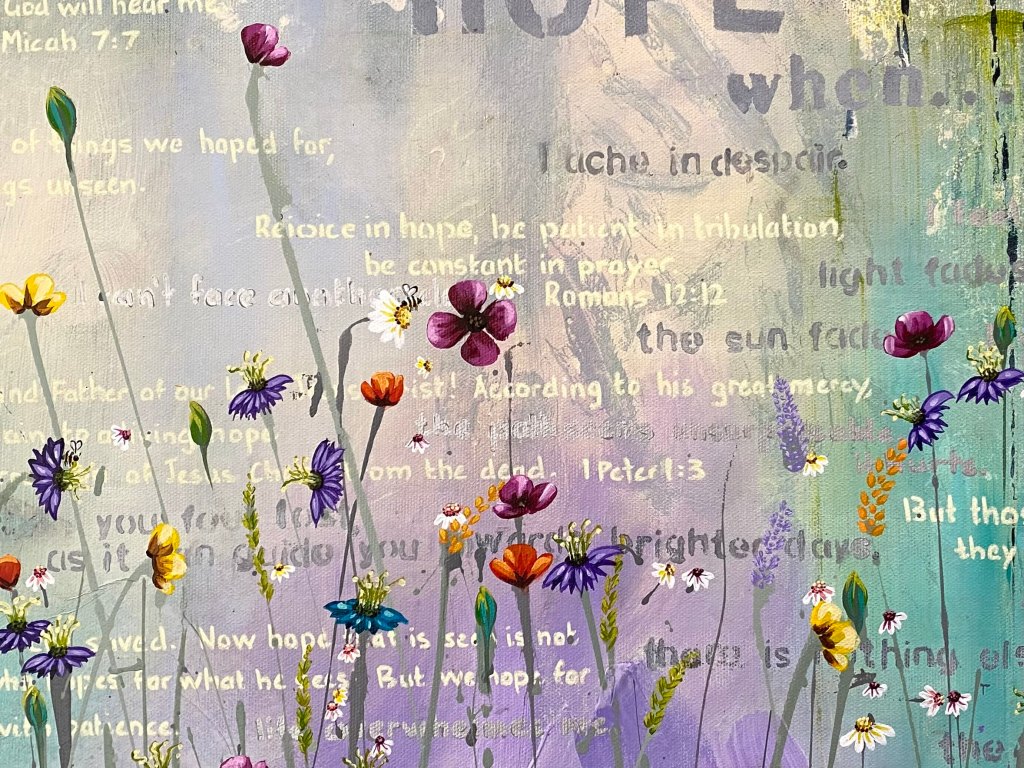 God will hear me.
Micah 7:7
HOPE
when...
of things we hoped for,
I ache in despair.
gs unseen.
I feel
Rejoice in hope, be patient in tribulation,
be constant in prayer
light fades
I can't face another
Romans 12:12
the sun fade
and Father of our Christ! According to his great mercy,
again to a living hope
the
hurts.
of Jesus Christ from the dead. 1 Peter 1:3
But tho
you feel lost,
they
as it can guide you towards brighter days.
saved. Now hope that is seen is not
there is nothing els
who hopes for what he sees But we hope for
with patience.
life overwhelmes me.
the